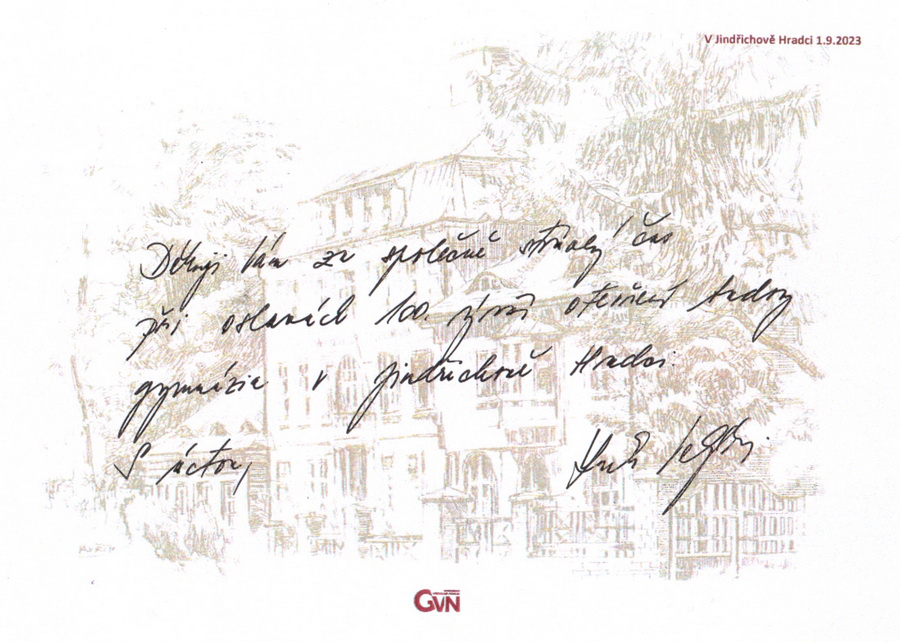 V Jindřichově Hradci 1.9.2023
Děkuji Vám za společně strávený čas
při oslavách 100. výročí otevření budovy
gymnázia v Jindřichově Hradci.
S úctou
GVN